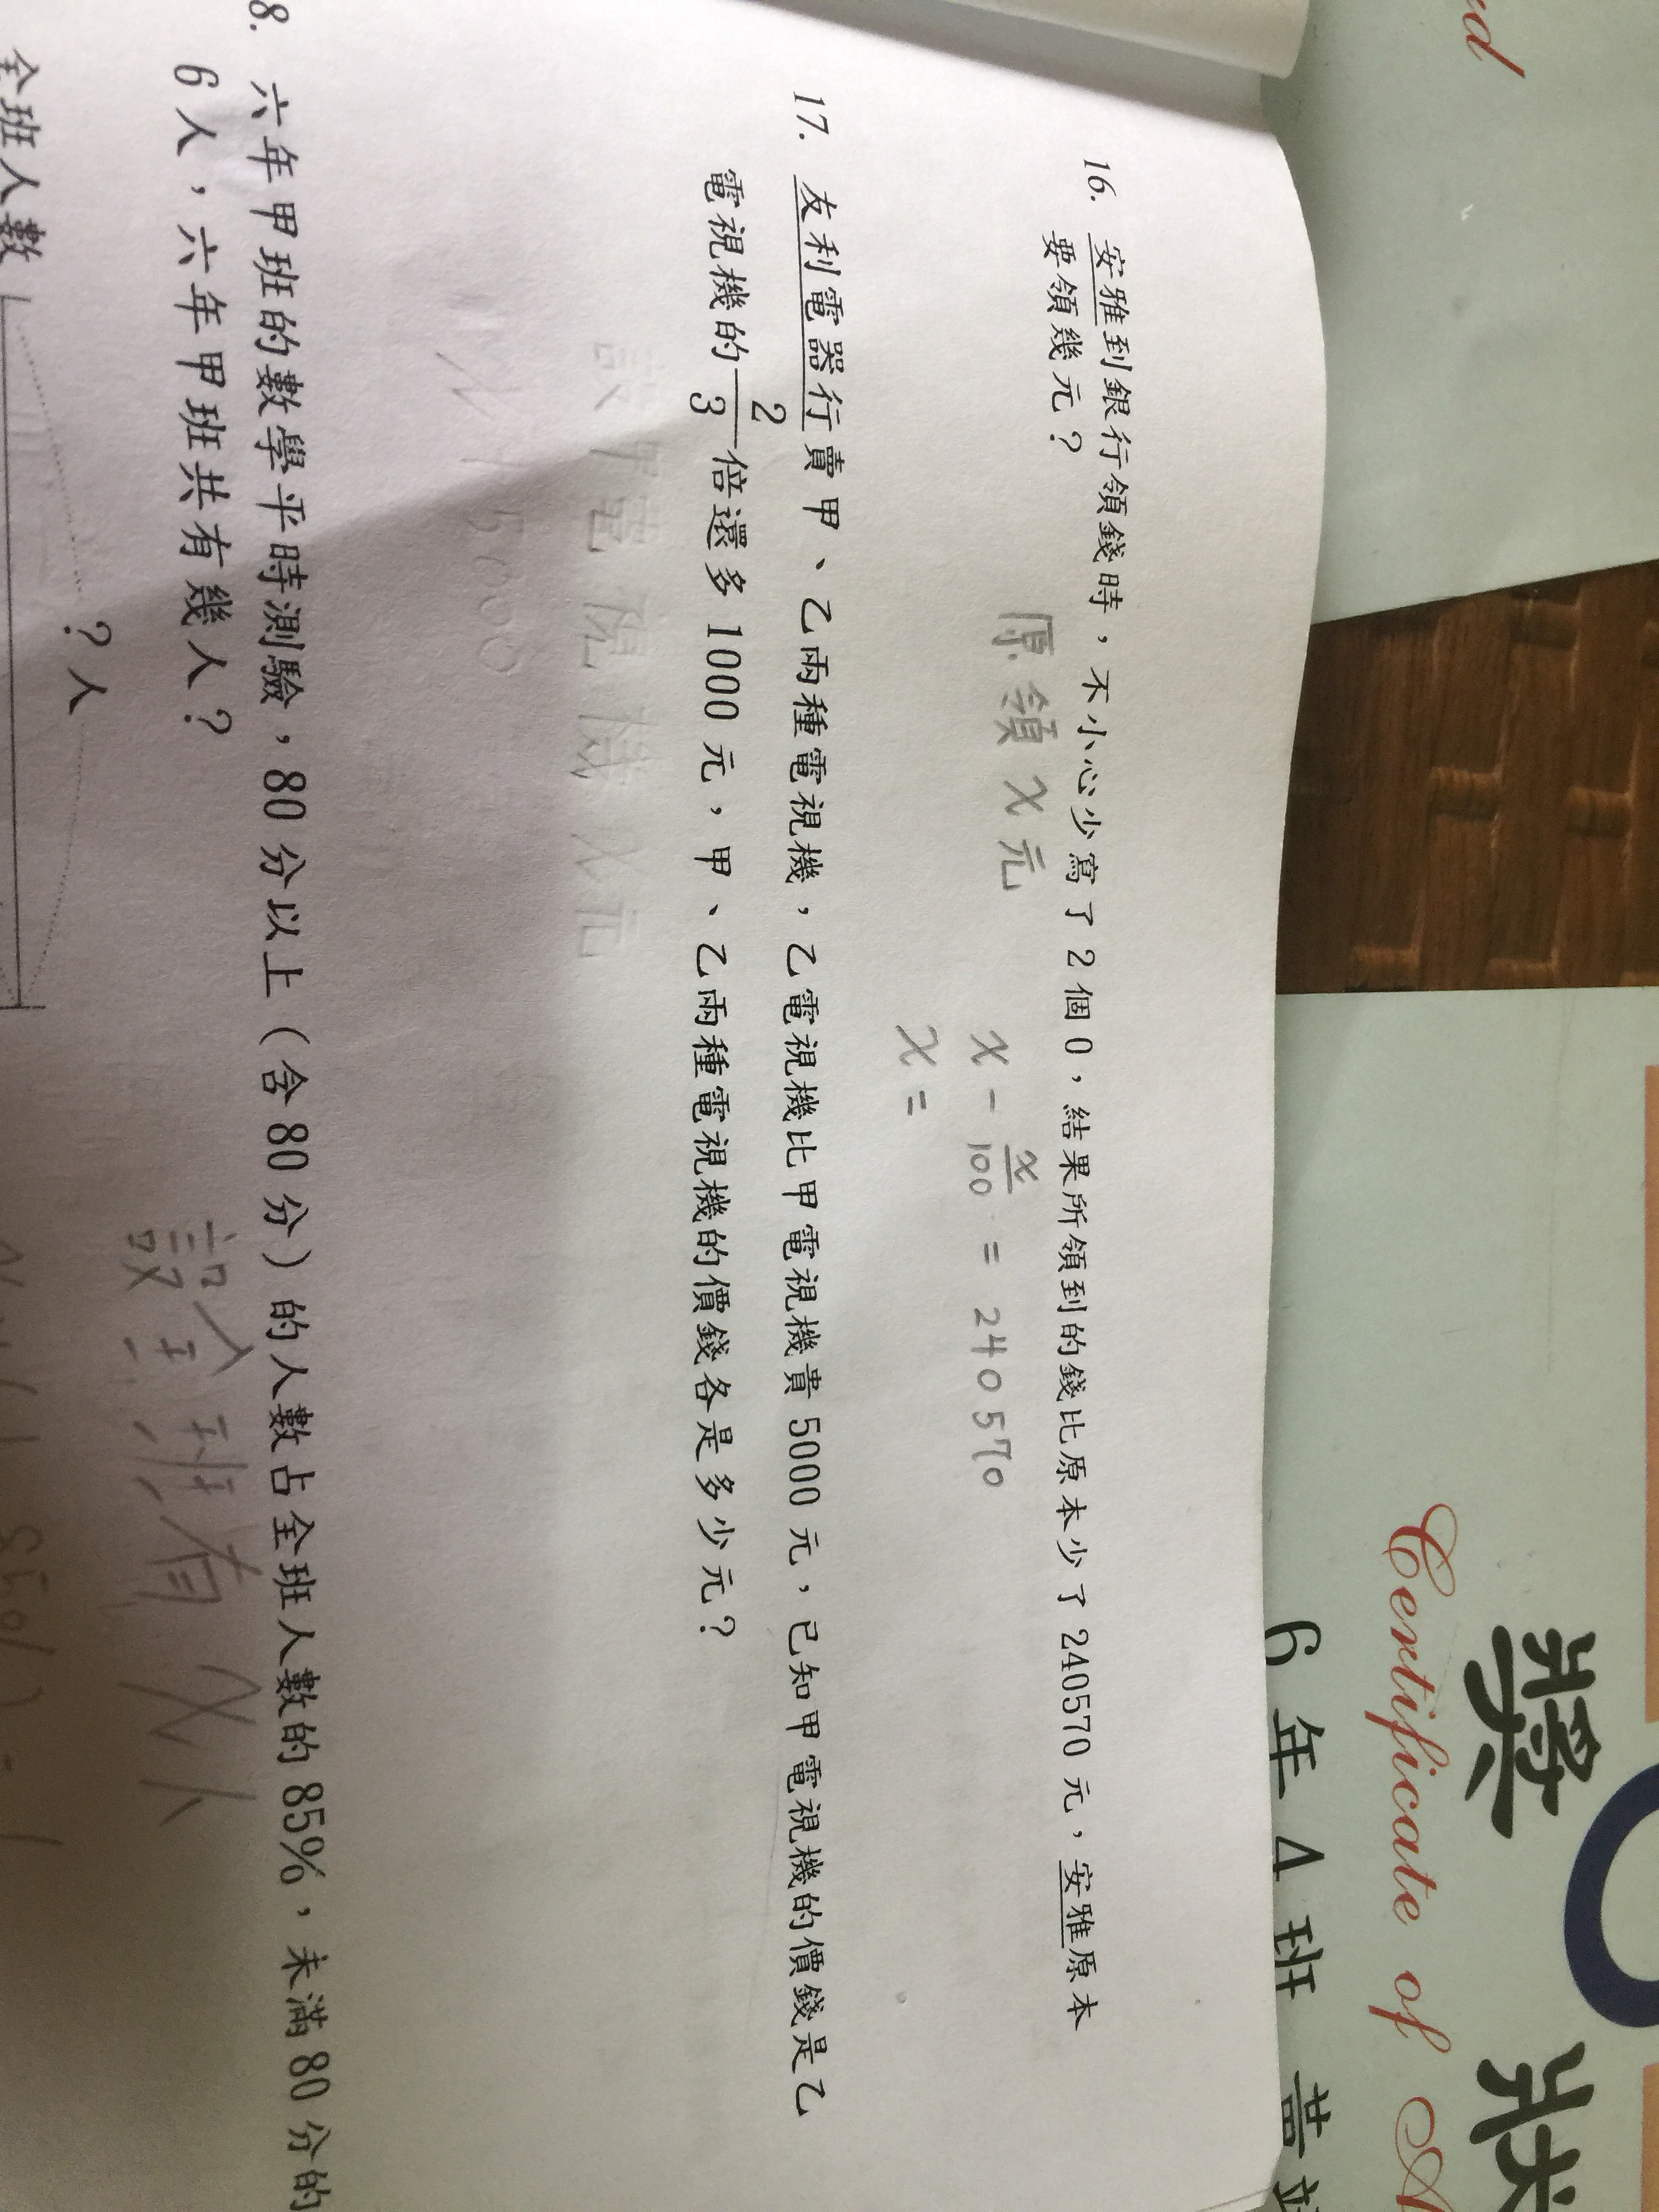 16. 安雅到銀行領錢時，不小心少寫了2個0，結果所領到的錢比原本少了240570元，安雅原本
要領幾元？
原領x元
x - x/100 = 240570
x =
17. 友利電器行賣甲、乙兩種電視機，乙電視機比甲電視機貴5000元，已知甲電視機的價錢是乙
電視機的2/3倍還多1000元，甲、乙兩種電視機的價錢各是多少元？
設甲電視機x元
5000
8. 六年甲班的數學平時測驗，80分以上（含80分）的人數占全班人數的85%，未滿80分的
6人，六年甲班共有幾人？
設全班有x人
？人
全班人數
Certificate of A
獎狀
6年4班 黃